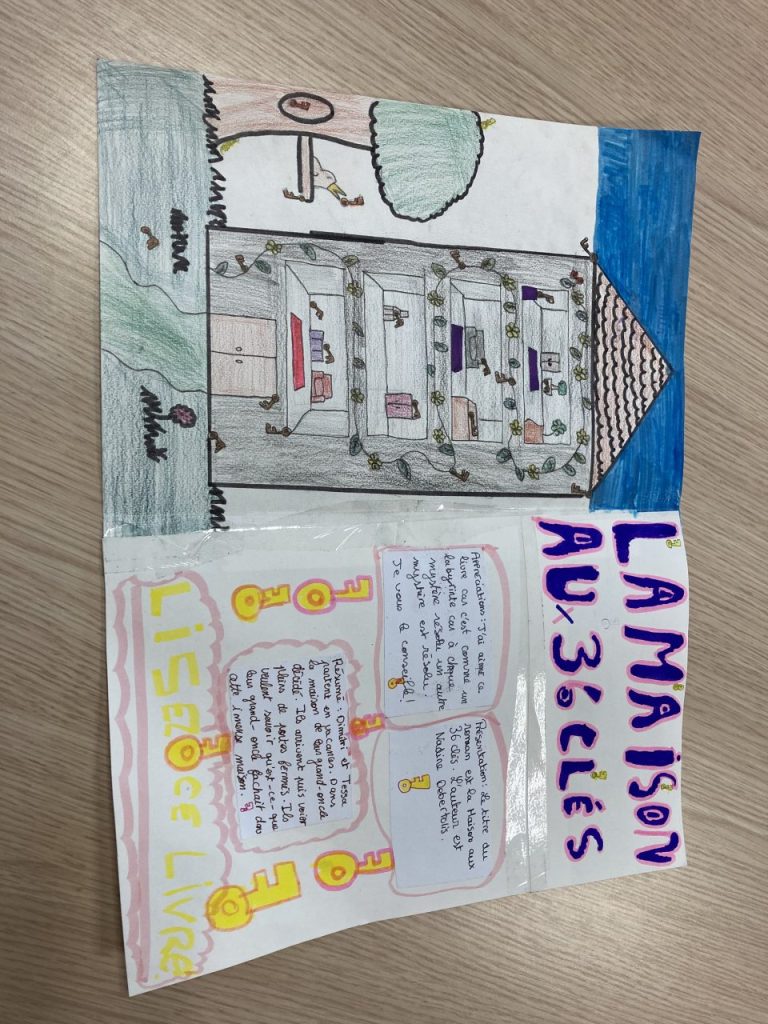 LA MAISON
AUx 36 CLÉS
Appréciations : J'ai aimé ce
livre car c'est comme un
labyrinthe car à chaque
mystère résolu un autre
mystère est résolu.
Je vous le conseille!
Présentation : Le titre du
roman est la Maison aux
36 clés. L'auteur est
Nadine Debertolis.
Résumé : Dimitri et Tessa
partent en vacances. Dans
la maison de leur grand-oncle
décidé. Ils arrivent puis voien
pleins de portes fermés. Ils
veulent savoir qu'est-ce-que
leur grand-oncle fachait dans
cette imense maison.
LISEZ CE LIVRE